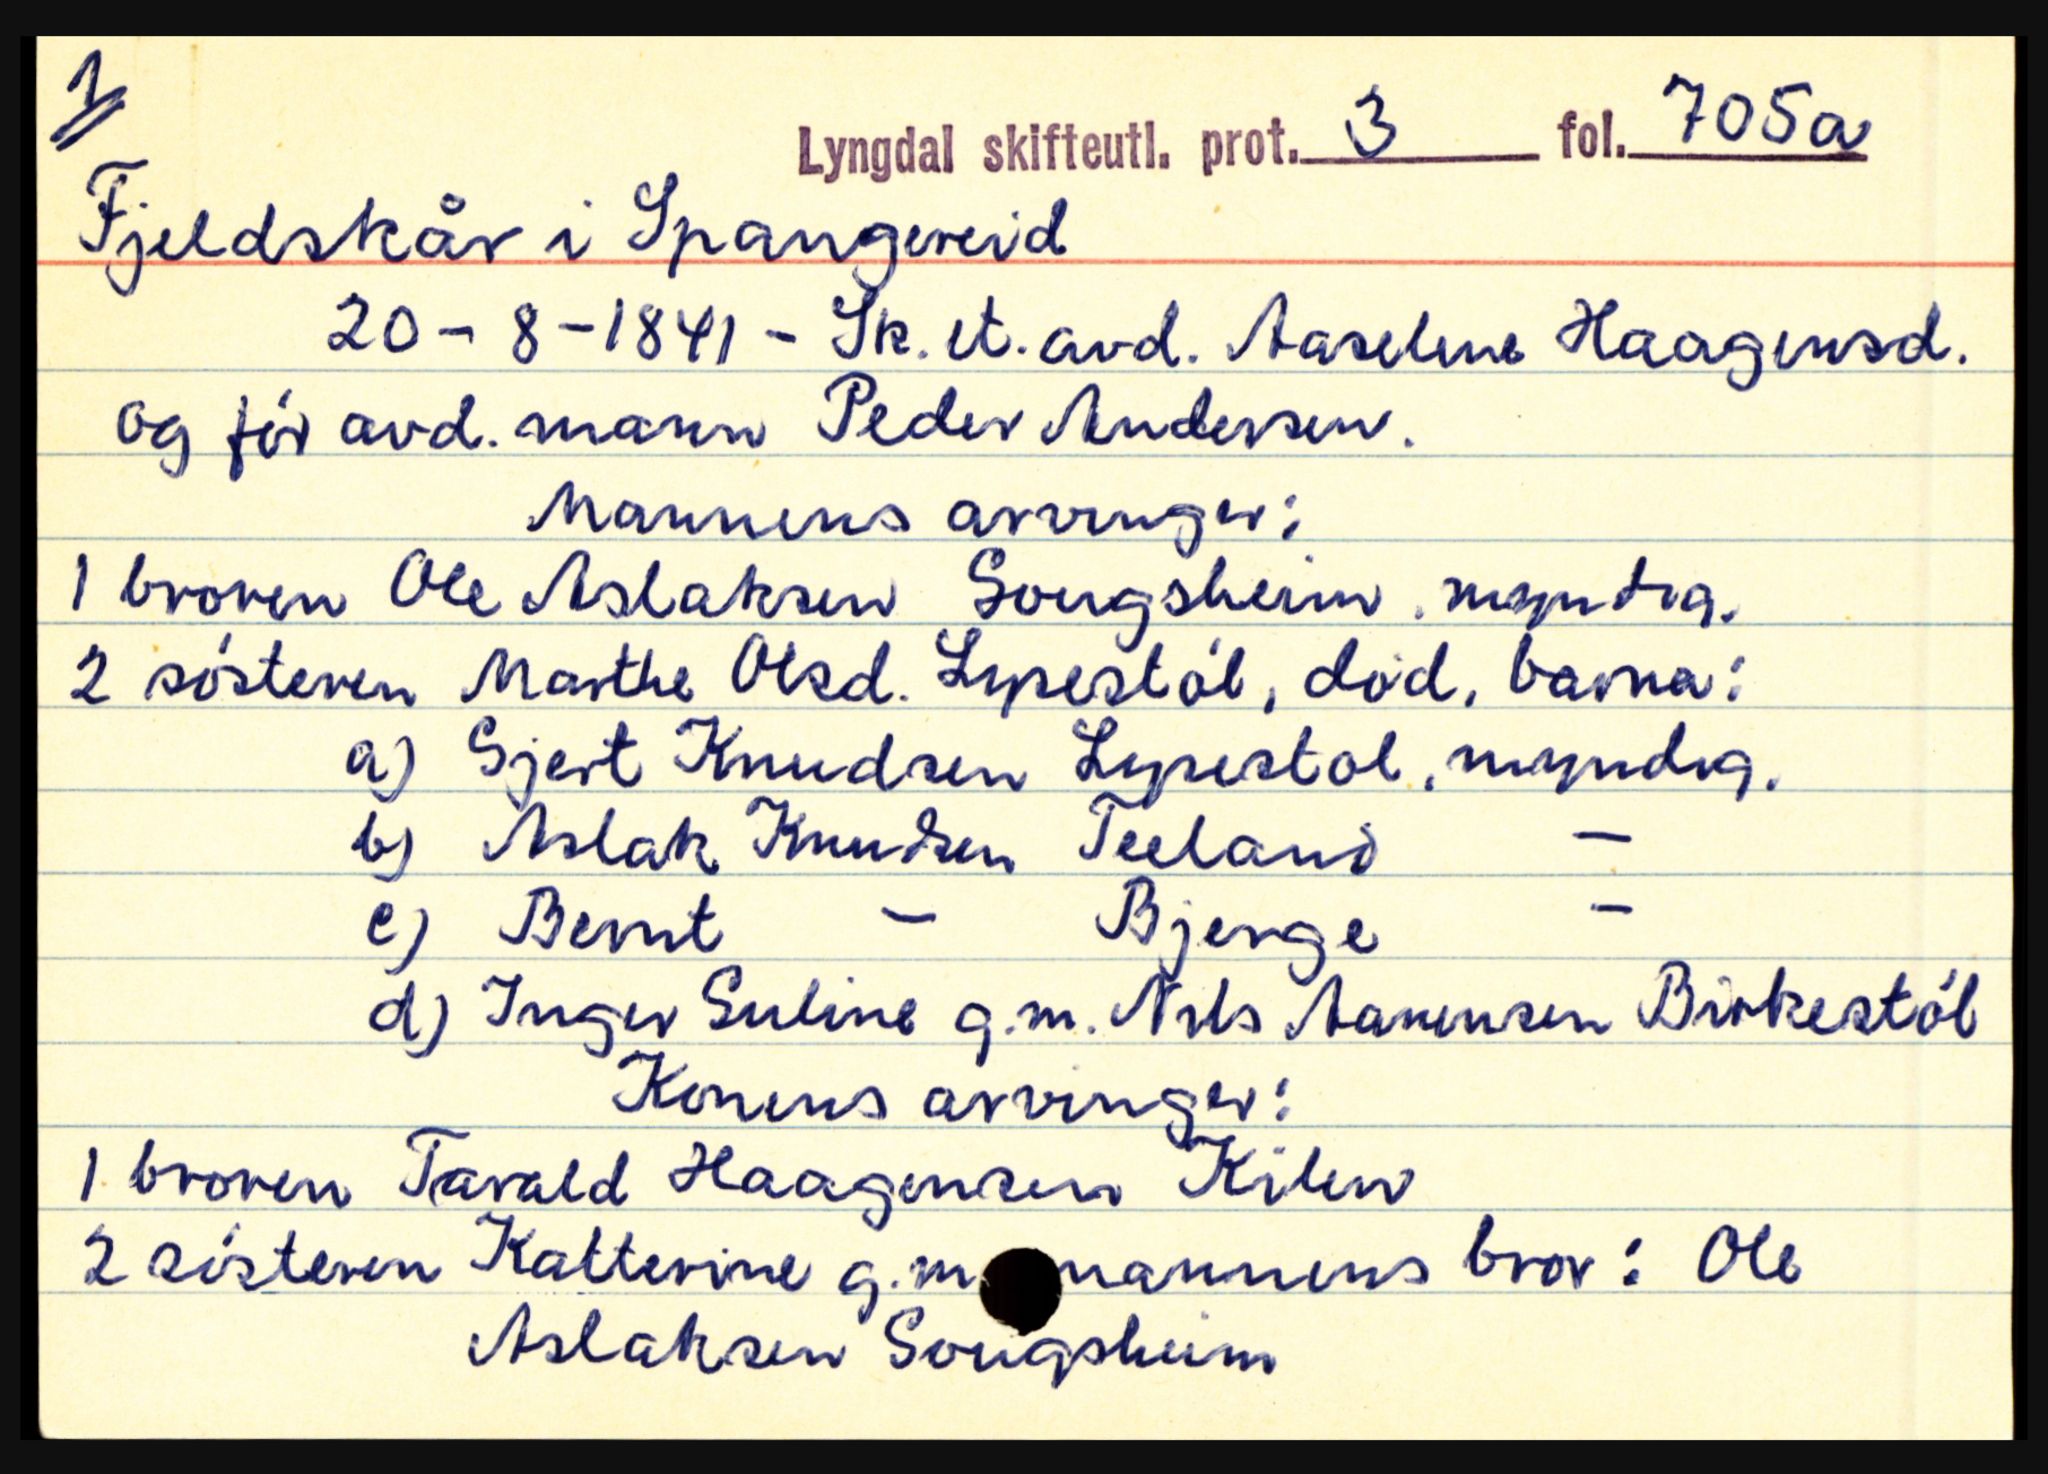 1
Lyngdal skifteutl. prot. 3 fol. 705a
Fjeldskår i Spangereid
20-8-1841 - Sk. et. avd. Aaselene Haagensd.
og før avd. mann Peder Andersen.
Mannens arvinger:
1 broren Ole Aslaksen Gougsheim. myndig.
2 søsteren Marthe Olsd. Lysestøl, død, barna:
a) Gjert Knudsen Lysestøl, myndig.
b) Aslak Knudsen Teeland -
c) Bernt - Bjerge -
d) Inger Guline g.m. Nils Aanensen Birkestøl
Konens arvinger:
1 broren Tarald Haagensen Kilen
2 søsteren Katterine g.m. mannens bror: Ole
Aslaksen Gougsheim